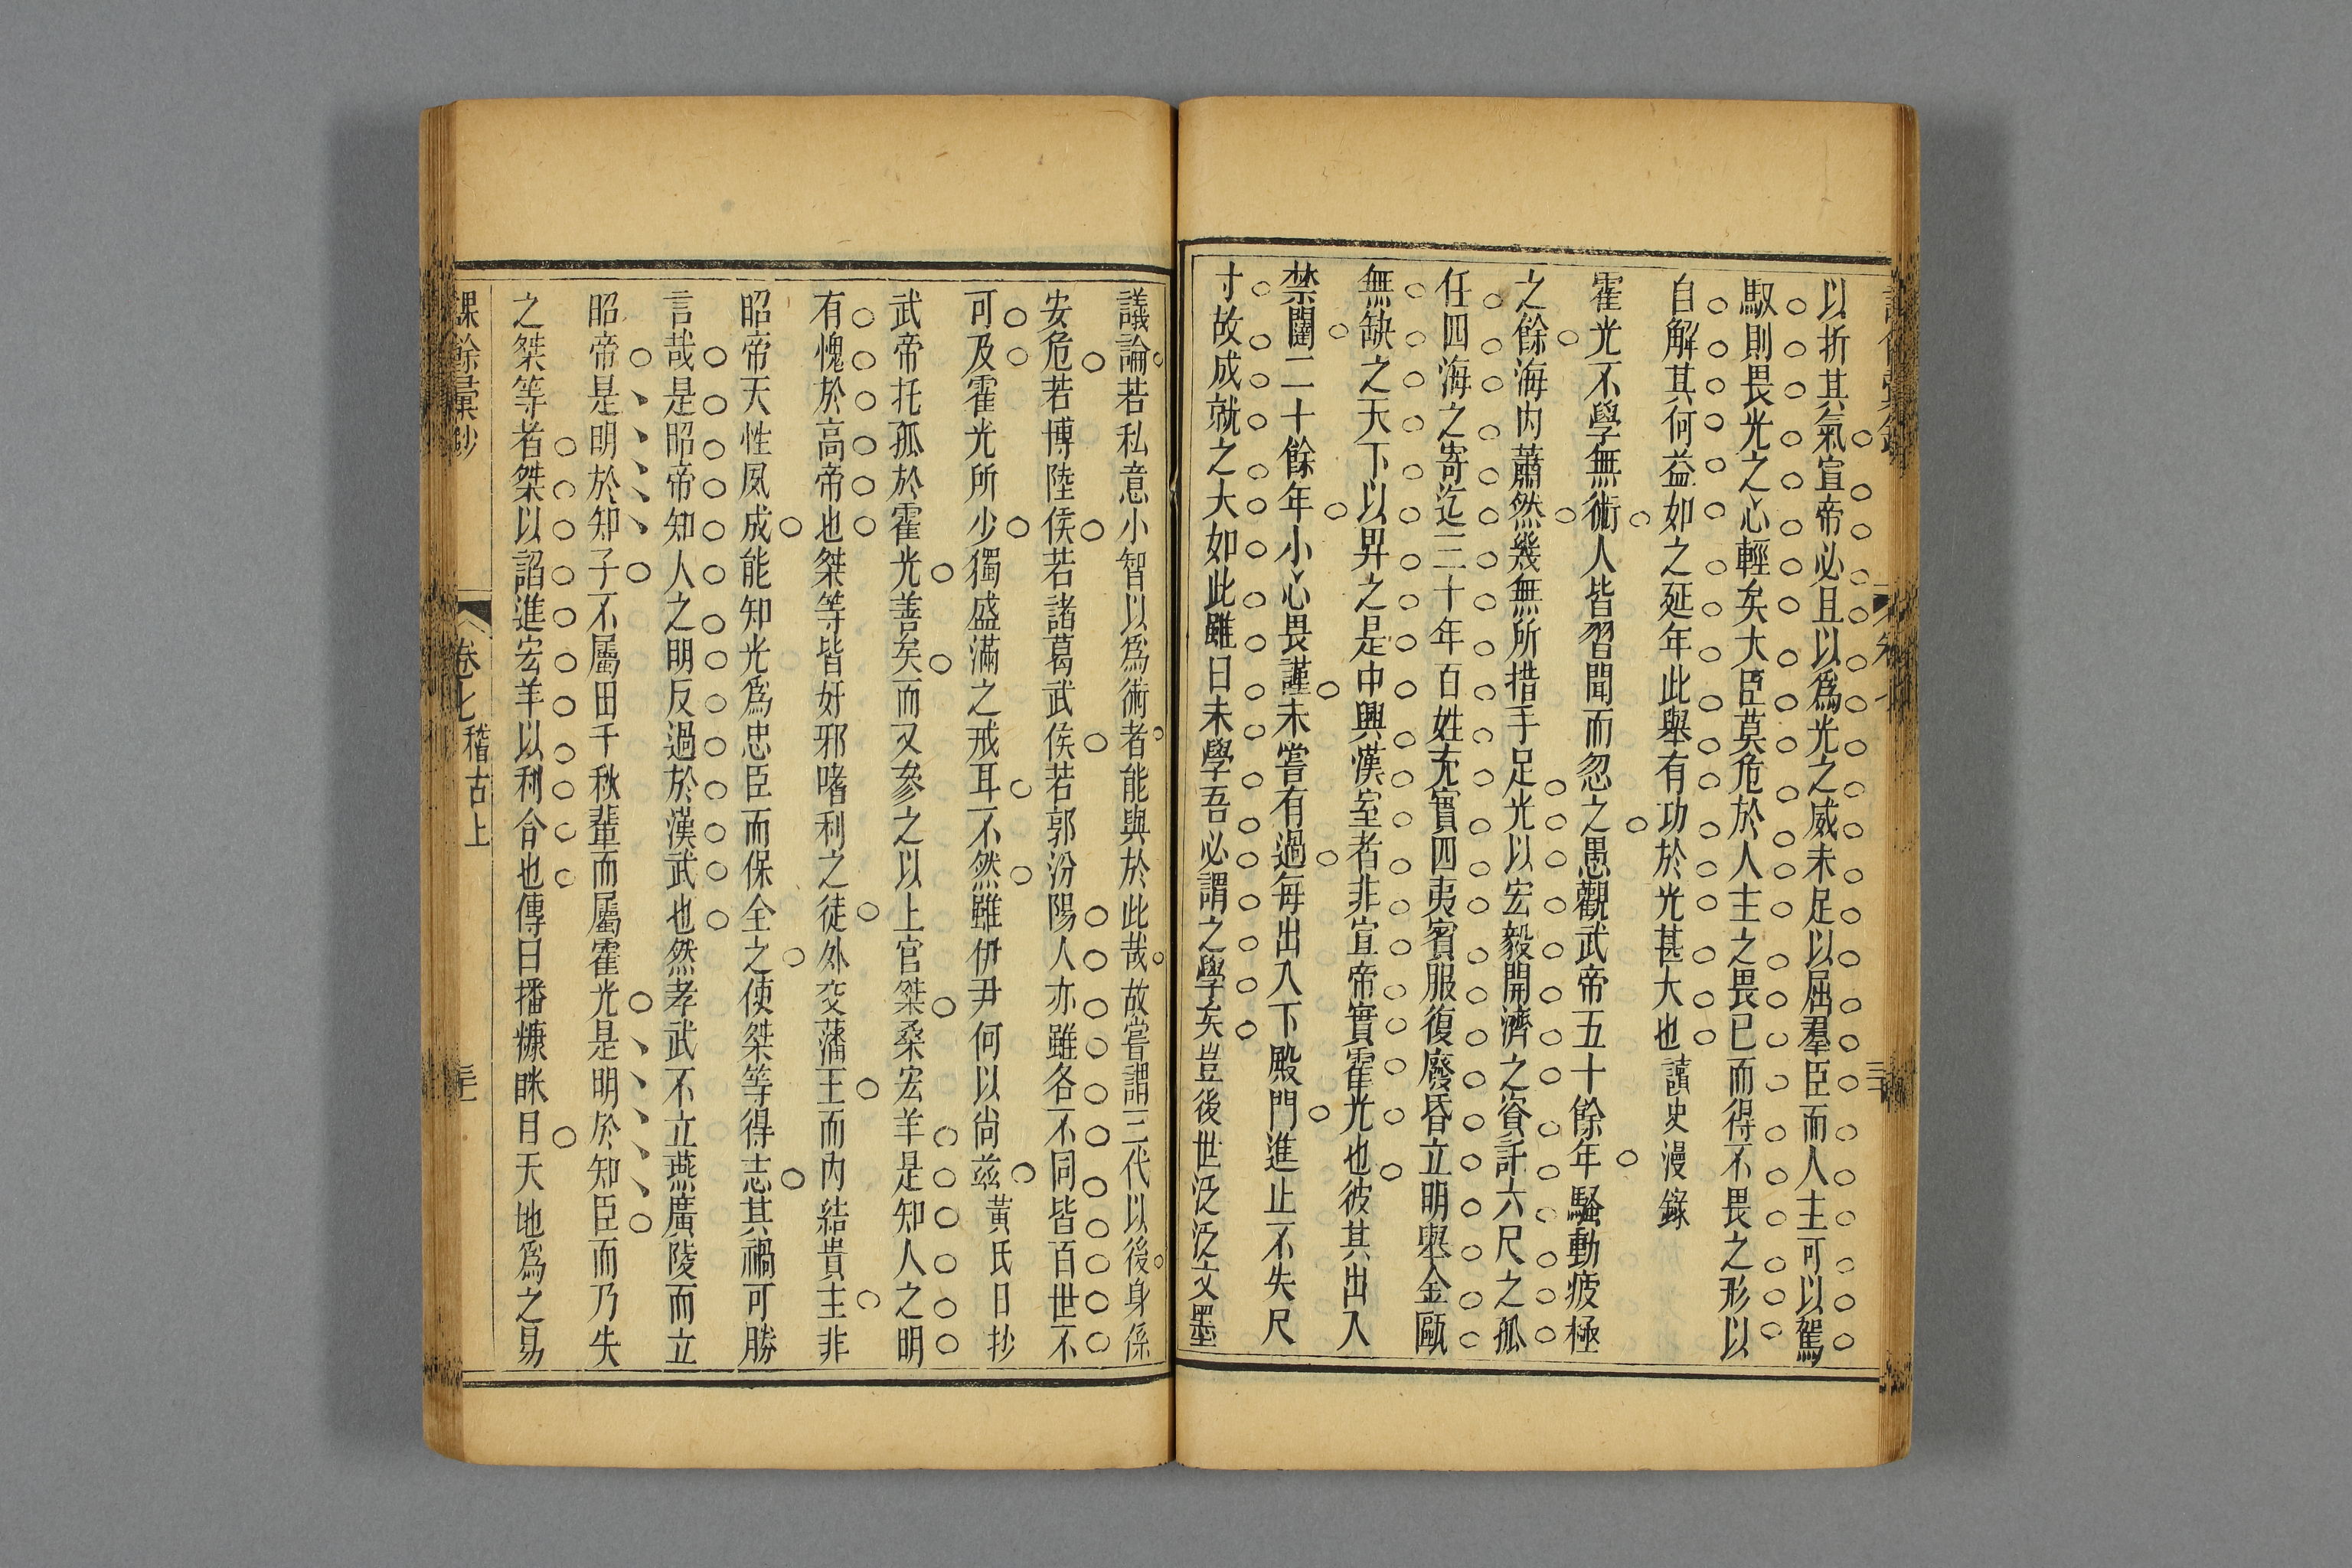 以折其氣宣帝必且以爲光之威未足以屈羣臣而人主可以駕
馭則畏光之心輕矣大臣莫危於人主之畏已而得不畏之形以
自解其何益如之延年此舉有功於光甚大也讀史漫錄
霍光不學無術人皆習聞而忽之愚觀武帝五十餘年騷動疲極
之餘海內蕭然幾無所措手足光以宏毅開濟之資託六尺之孤
任四海之寄迄三十年百姓充實四夷賓服復廢昏立明舉金甌
無缺之天下以畀之是中興漢室者非宣帝實霍光也彼其出入
禁闥二十餘年小心畏謹未嘗有過每出入下殿門進止不失尺
寸故成就之大如此雖曰未學吾必謂之學矣豈後世泛泛文墨
議論若私意小智以爲術者能與於此哉故嘗謂三代以後身係
安危若博陸侯若諸葛武侯若郭汾陽人亦雖各不同皆百世不
可及霍光所少獨盛滿之戒耳不然雖伊尹何以尚茲黃氏日抄
武帝托孤於霍光善矣而又參之以上官桀桑宏羊是知人之明
有愧於高帝也桀等皆奸邪嗜利之徒外交藩王而內結貴主非
昭帝天性夙成能知光爲忠臣而保全之使桀等得志其禍可勝
言哉是昭帝知人之明反過於漢武也然孝武不立燕廣陵而立
昭帝是明於知子不屬田千秋輩而屬霍光是明於知臣而乃失
之桀等者桀以諂進宏羊以利合也傳曰播糠眯目天地爲之易
課餘彙鈔 卷七 稽古上